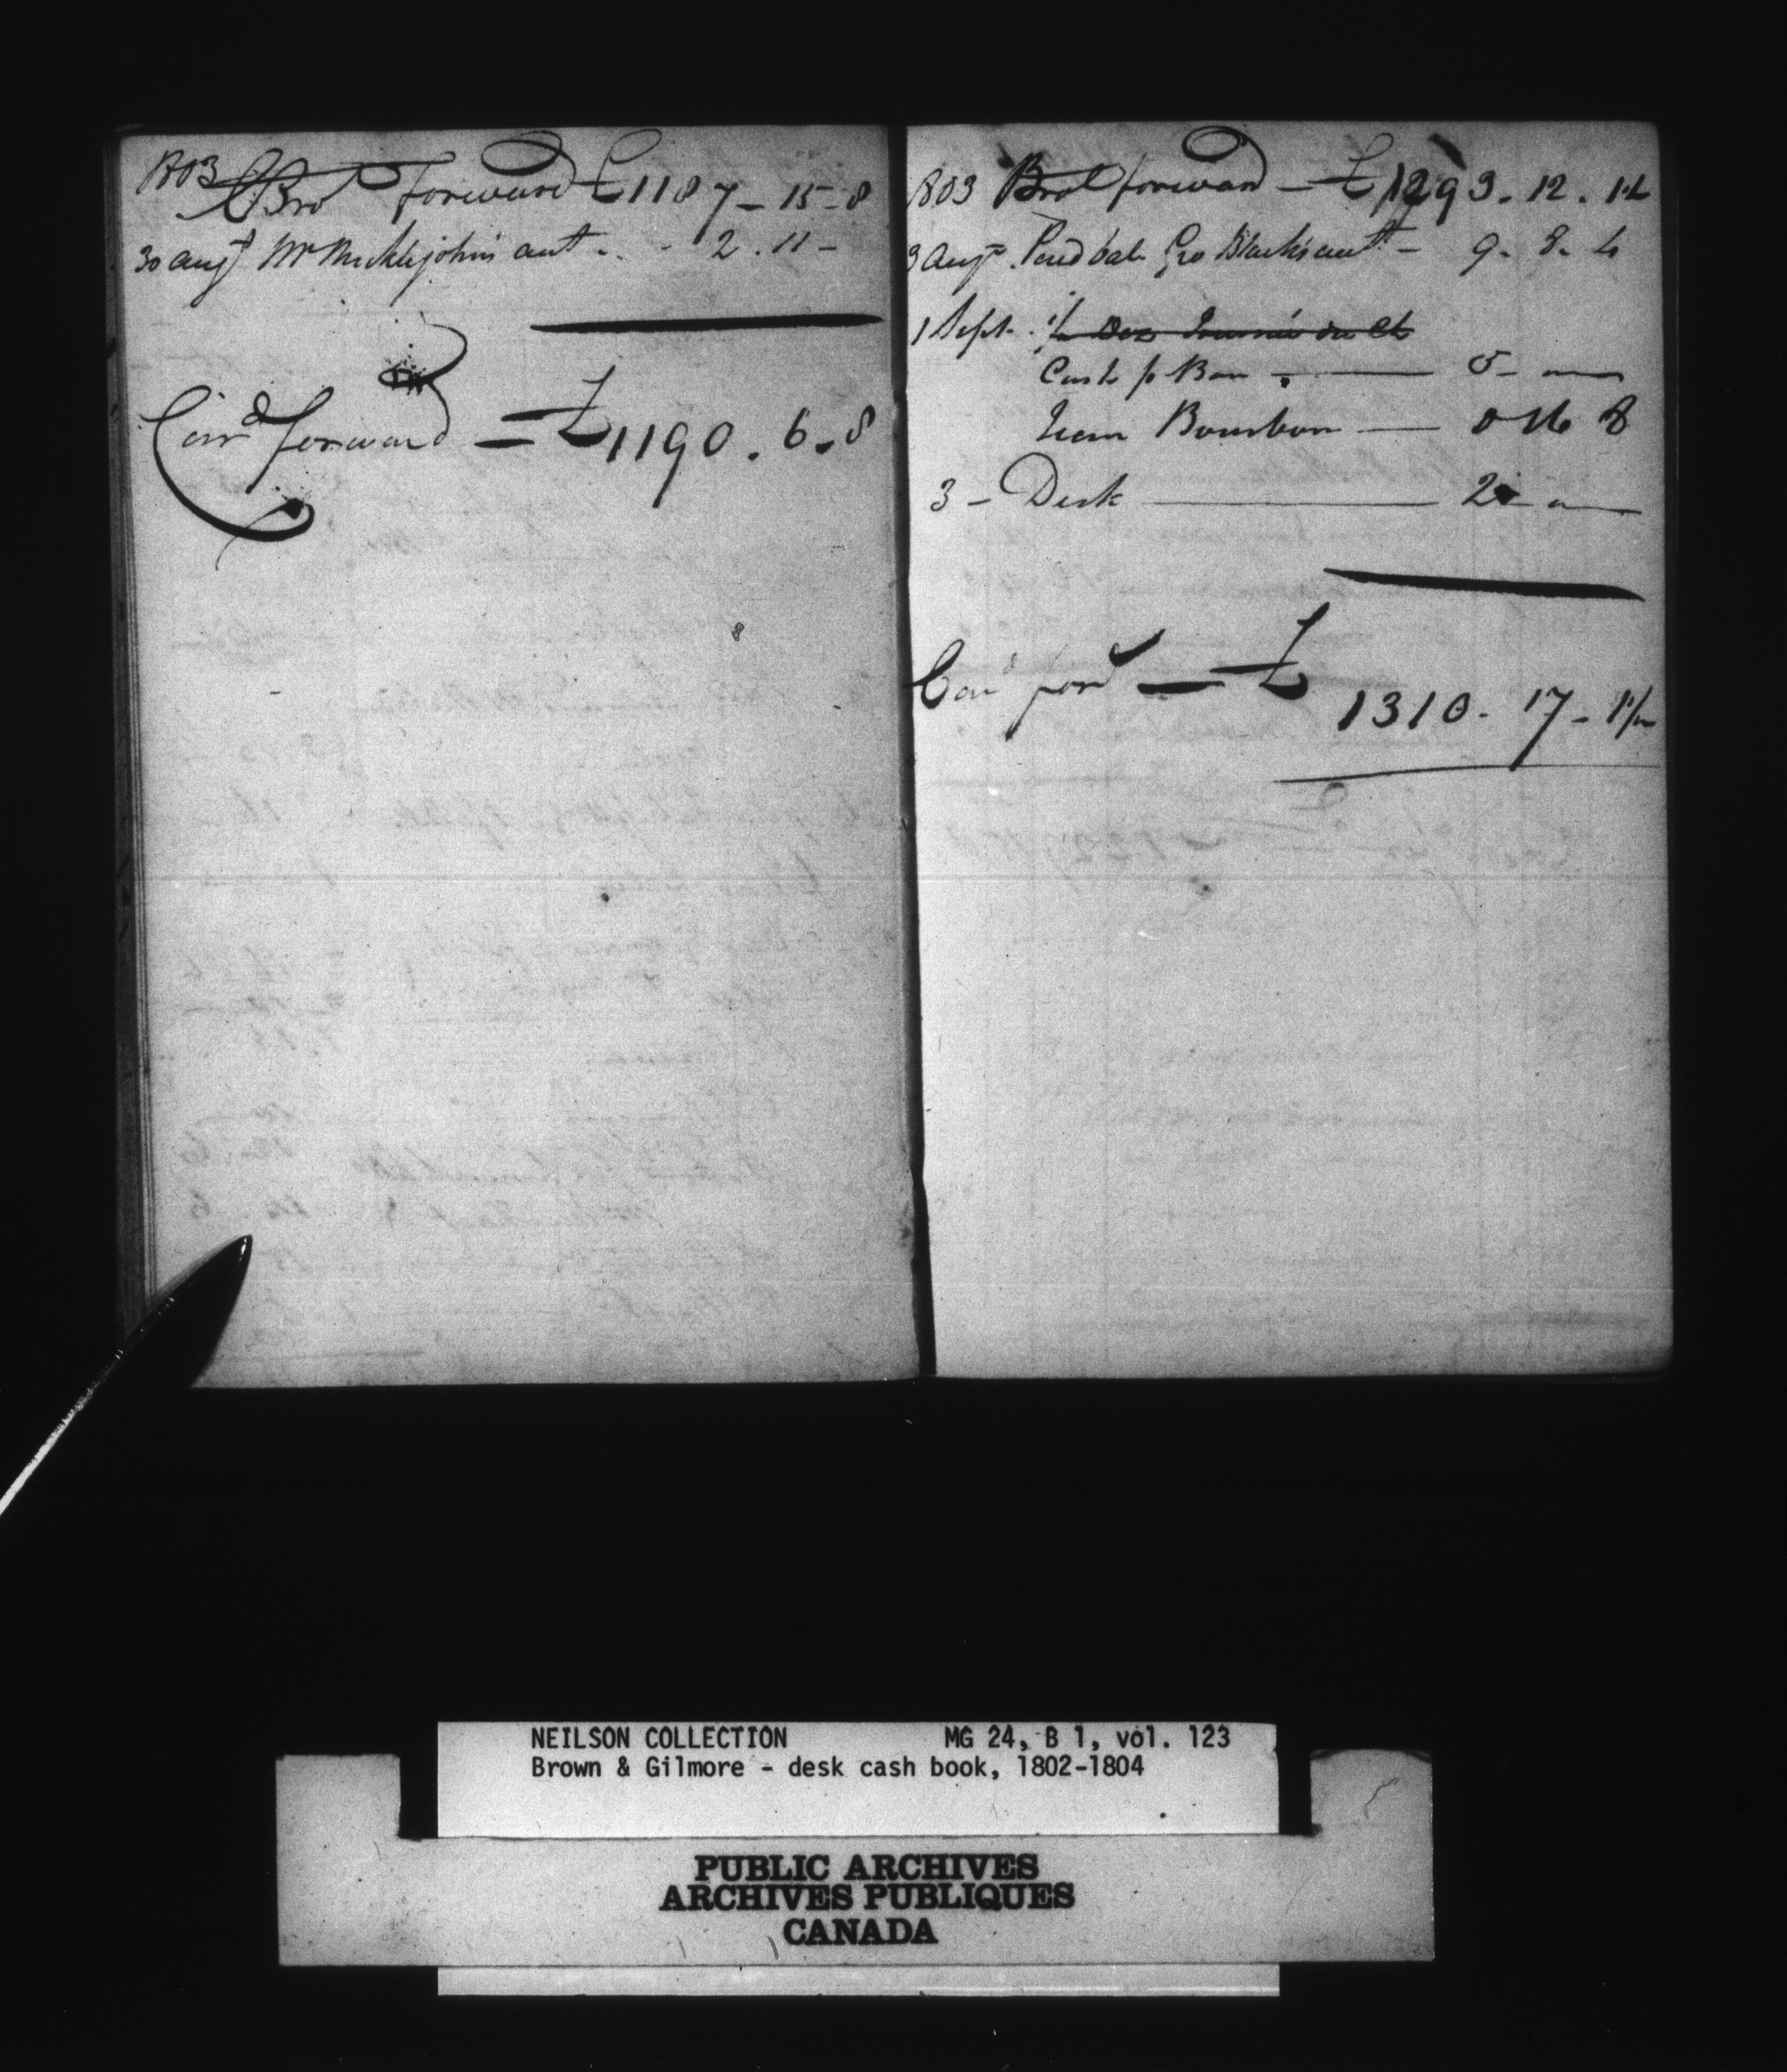 1803 Brot forward £1187 - 15 - 8
30 Augt Mr Micklejohn's acct - - 2 . 11 -
Carrd forward - £1190 . 6 . 8
1803 Brot forward - £1293 . 12 . 1½
3 Augt Paid bal. Geo Black's acct - 9 - 8 - 4
1 Sept.
Cash p Bon - 5 -
Jean Bourbon - 0 16 8
3 - Desk - 2 -
Carrd forwd - £
1310 - 17 - 1½
NEILSON COLLECTION MG 24, B 1, vol. 123
Brown & Gilmore - desk cash book, 1802-1804
PUBLIC ARCHIVES
ARCHIVES PUBLIQUES
CANADA